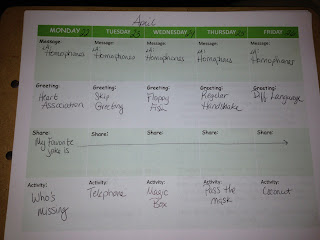 April
MONDAY TUESDAY WEDNESDAY THURSDAY FRIDAY
Message: Message: Message: Message: Message:
Homophones Homophones Homophones Homophones
Greeting: Greeting: Greeting: Greeting: Greeting:
Heart Skip Floppy Regular Diff. Language
Association Greeting Fish Handshake
Share: Share: Share: Share: Share:
My Favorite
joke is
Activity: Activity: Activity: Activity: Activity:
Who's Telephone Magic Pass the Coconut
Missing Box mask